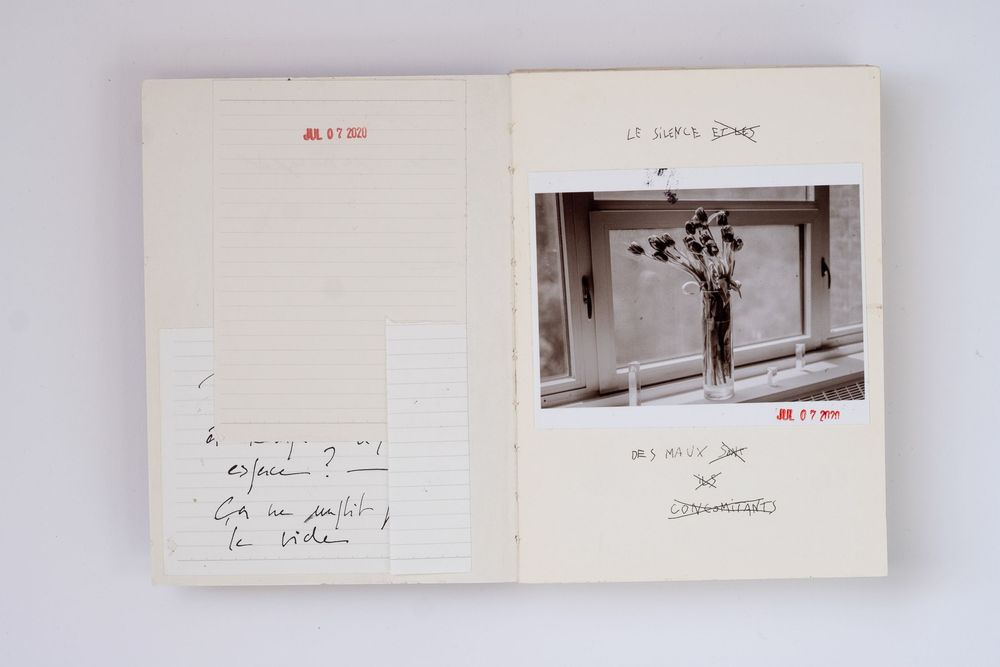 JUL 0 7 2020
espace ? —
Ça ne remplit
le vide
LE SILENCE ET LES
JUL 0 7 2020
DES MAUX SONT
ILS
CONCOMITANTS